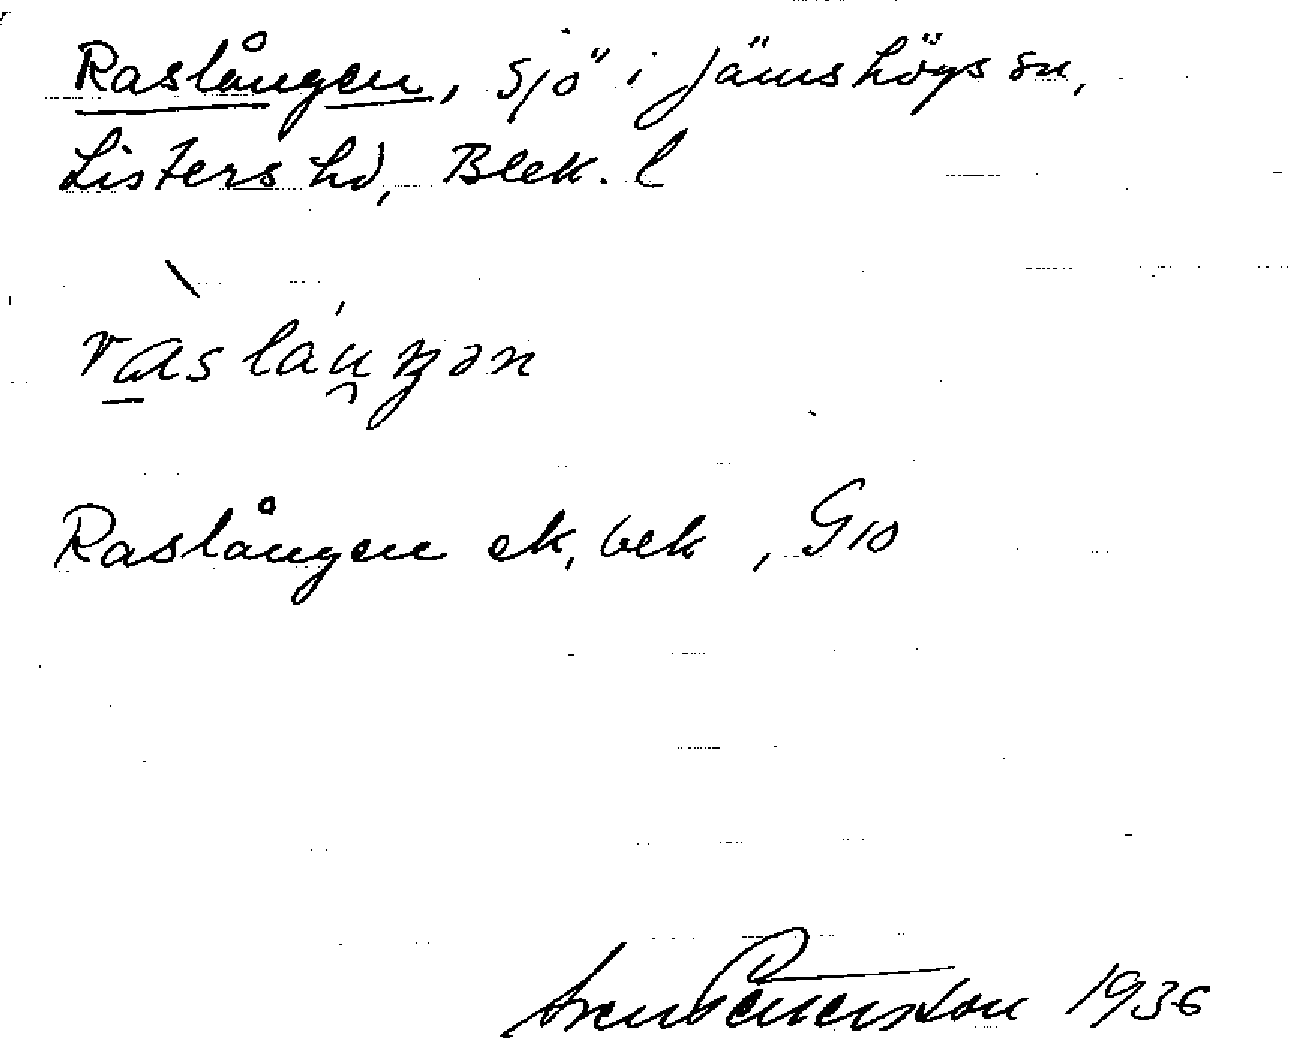 Raslången, sjö i Jämshögs sn,
Listers hd, Blek. l
raslauŋən
Raslången ek, bek, G10
Petersson 1936